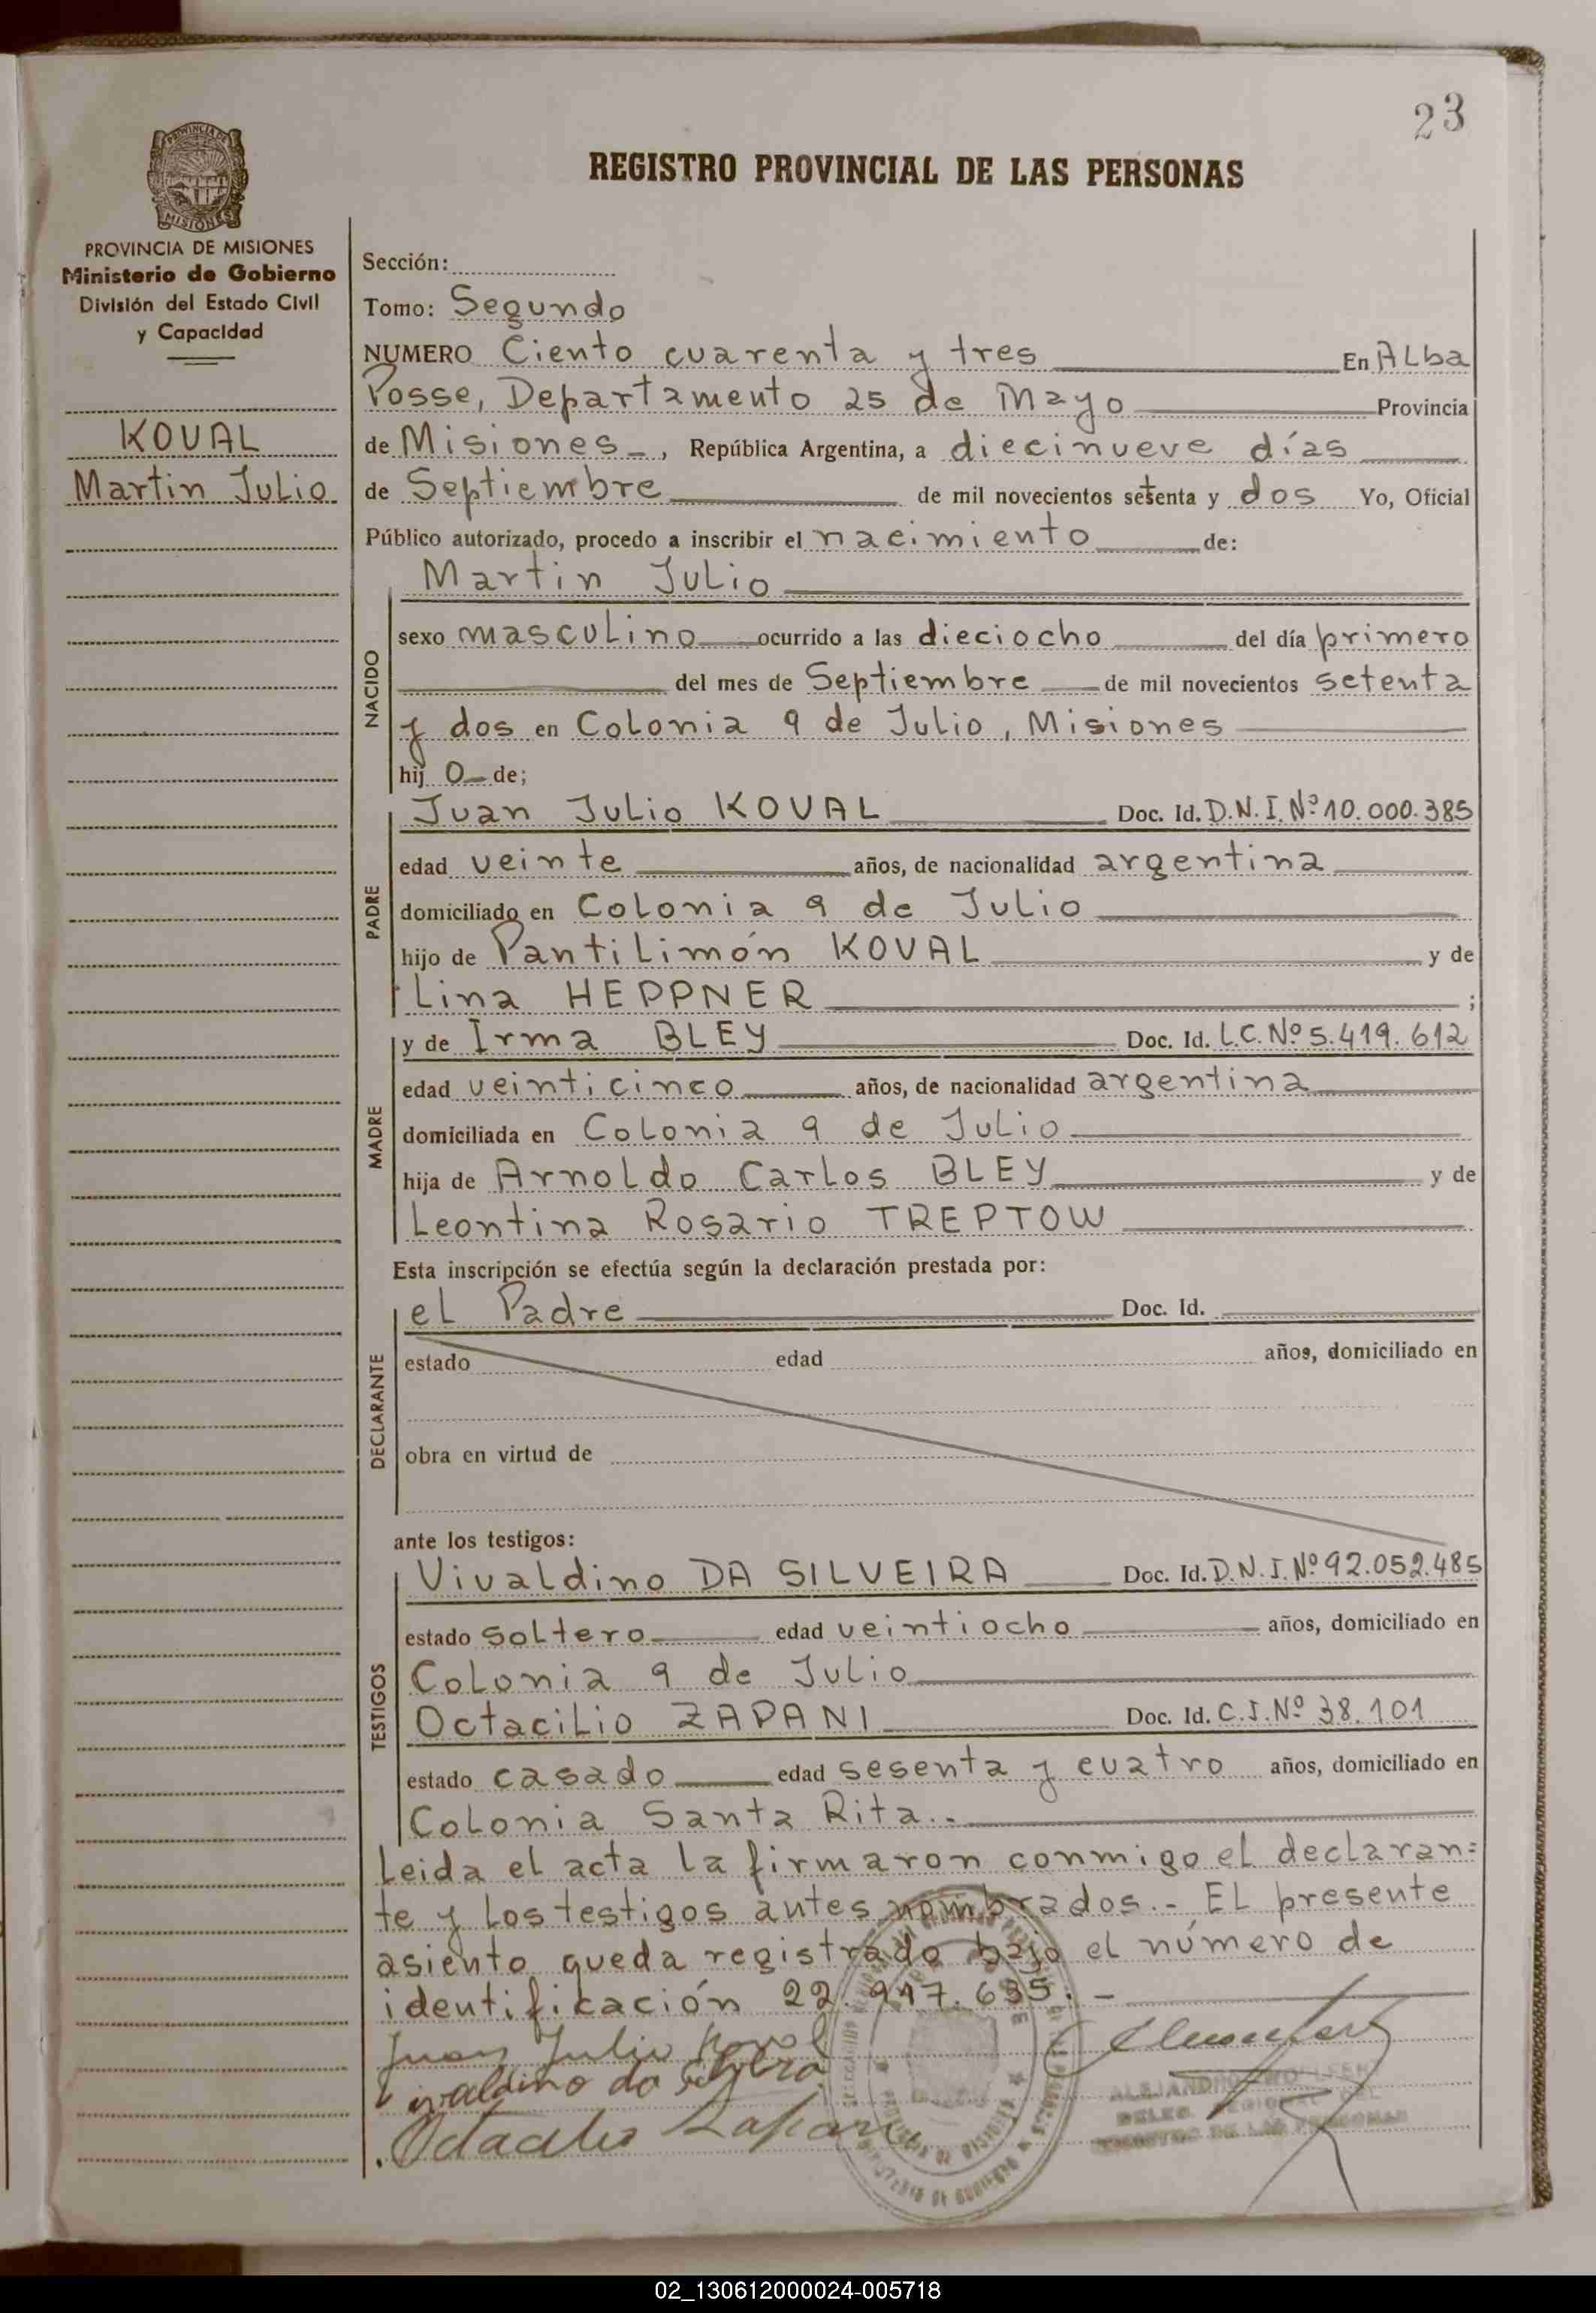 23
PROVINCIA DE
MISIONES
REGISTRO PROVINCIAL DE LAS PERSONAS
PROVINCIA DE MISIONES
Ministerio de Gobierno
División del Estado Civil
y Capacidad
KOVAL
Martin Julio
Sección:
Tomo: Segundo
NUMERO Ciento cuarenta y tres En ALba
Posse, Departamento 25 de Mayo Provincia
de Misiones-, República Argentina, a diecinueve días
de Septiembre de mil novecientos setenta y dos Yo, Oficial
Público autorizado, procedo a inscribir el nacimiento de:
Martin Julio
NACIDO
sexo masculino ocurrido a las dieciocho del día primero
del mes de Septiembre de mil novecientos setenta
y dos en Colonia 9 de Julio, Misiones
hij o de;
PADRE
Juan Julio KOVAL Doc. Id. D.N.I. Nº 10.000.385
edad veinte años, de nacionalidad argentina
domiciliado en Colonia 9 de Julio
hijo de Pantilimón KOVAL y de
Lina HEPPNER ;
MADRE
y de Irma BLEY Doc. Id. L.C. Nº 5.419.612
edad veinticinco años, de nacionalidad argentina
domiciliada en Colonia 9 de Julio
hija de Arnoldo Carlos BLEY y de
Leontina Rosario TREPTOW
Esta inscripción se efectúa según la declaración prestada por:
DECLARANTE
el Padre Doc. Id.
estado edad años, domiciliado en
obra en virtud de
ante los testigos:
TESTIGOS
Vivaldino DA SILVEIRA Doc. Id. D.N.I. Nº 92.052.485
estado soltero edad veintiocho años, domiciliado en
Colonia 9 de Julio
Octacilio ZAPANI Doc. Id. C.I. Nº 38.101
estado casado edad sesenta y cuatro años, domiciliado en
Colonia Santa Rita.-
Leida el acta la firmaron conmigo el declaran=
te y los testigos antes nombrados.- EL presente
asiento queda registrado bajo el número de
identificación 22.917.635.-
Juan Julio Koval
Octacilio Zapani
02_130612000024-005718